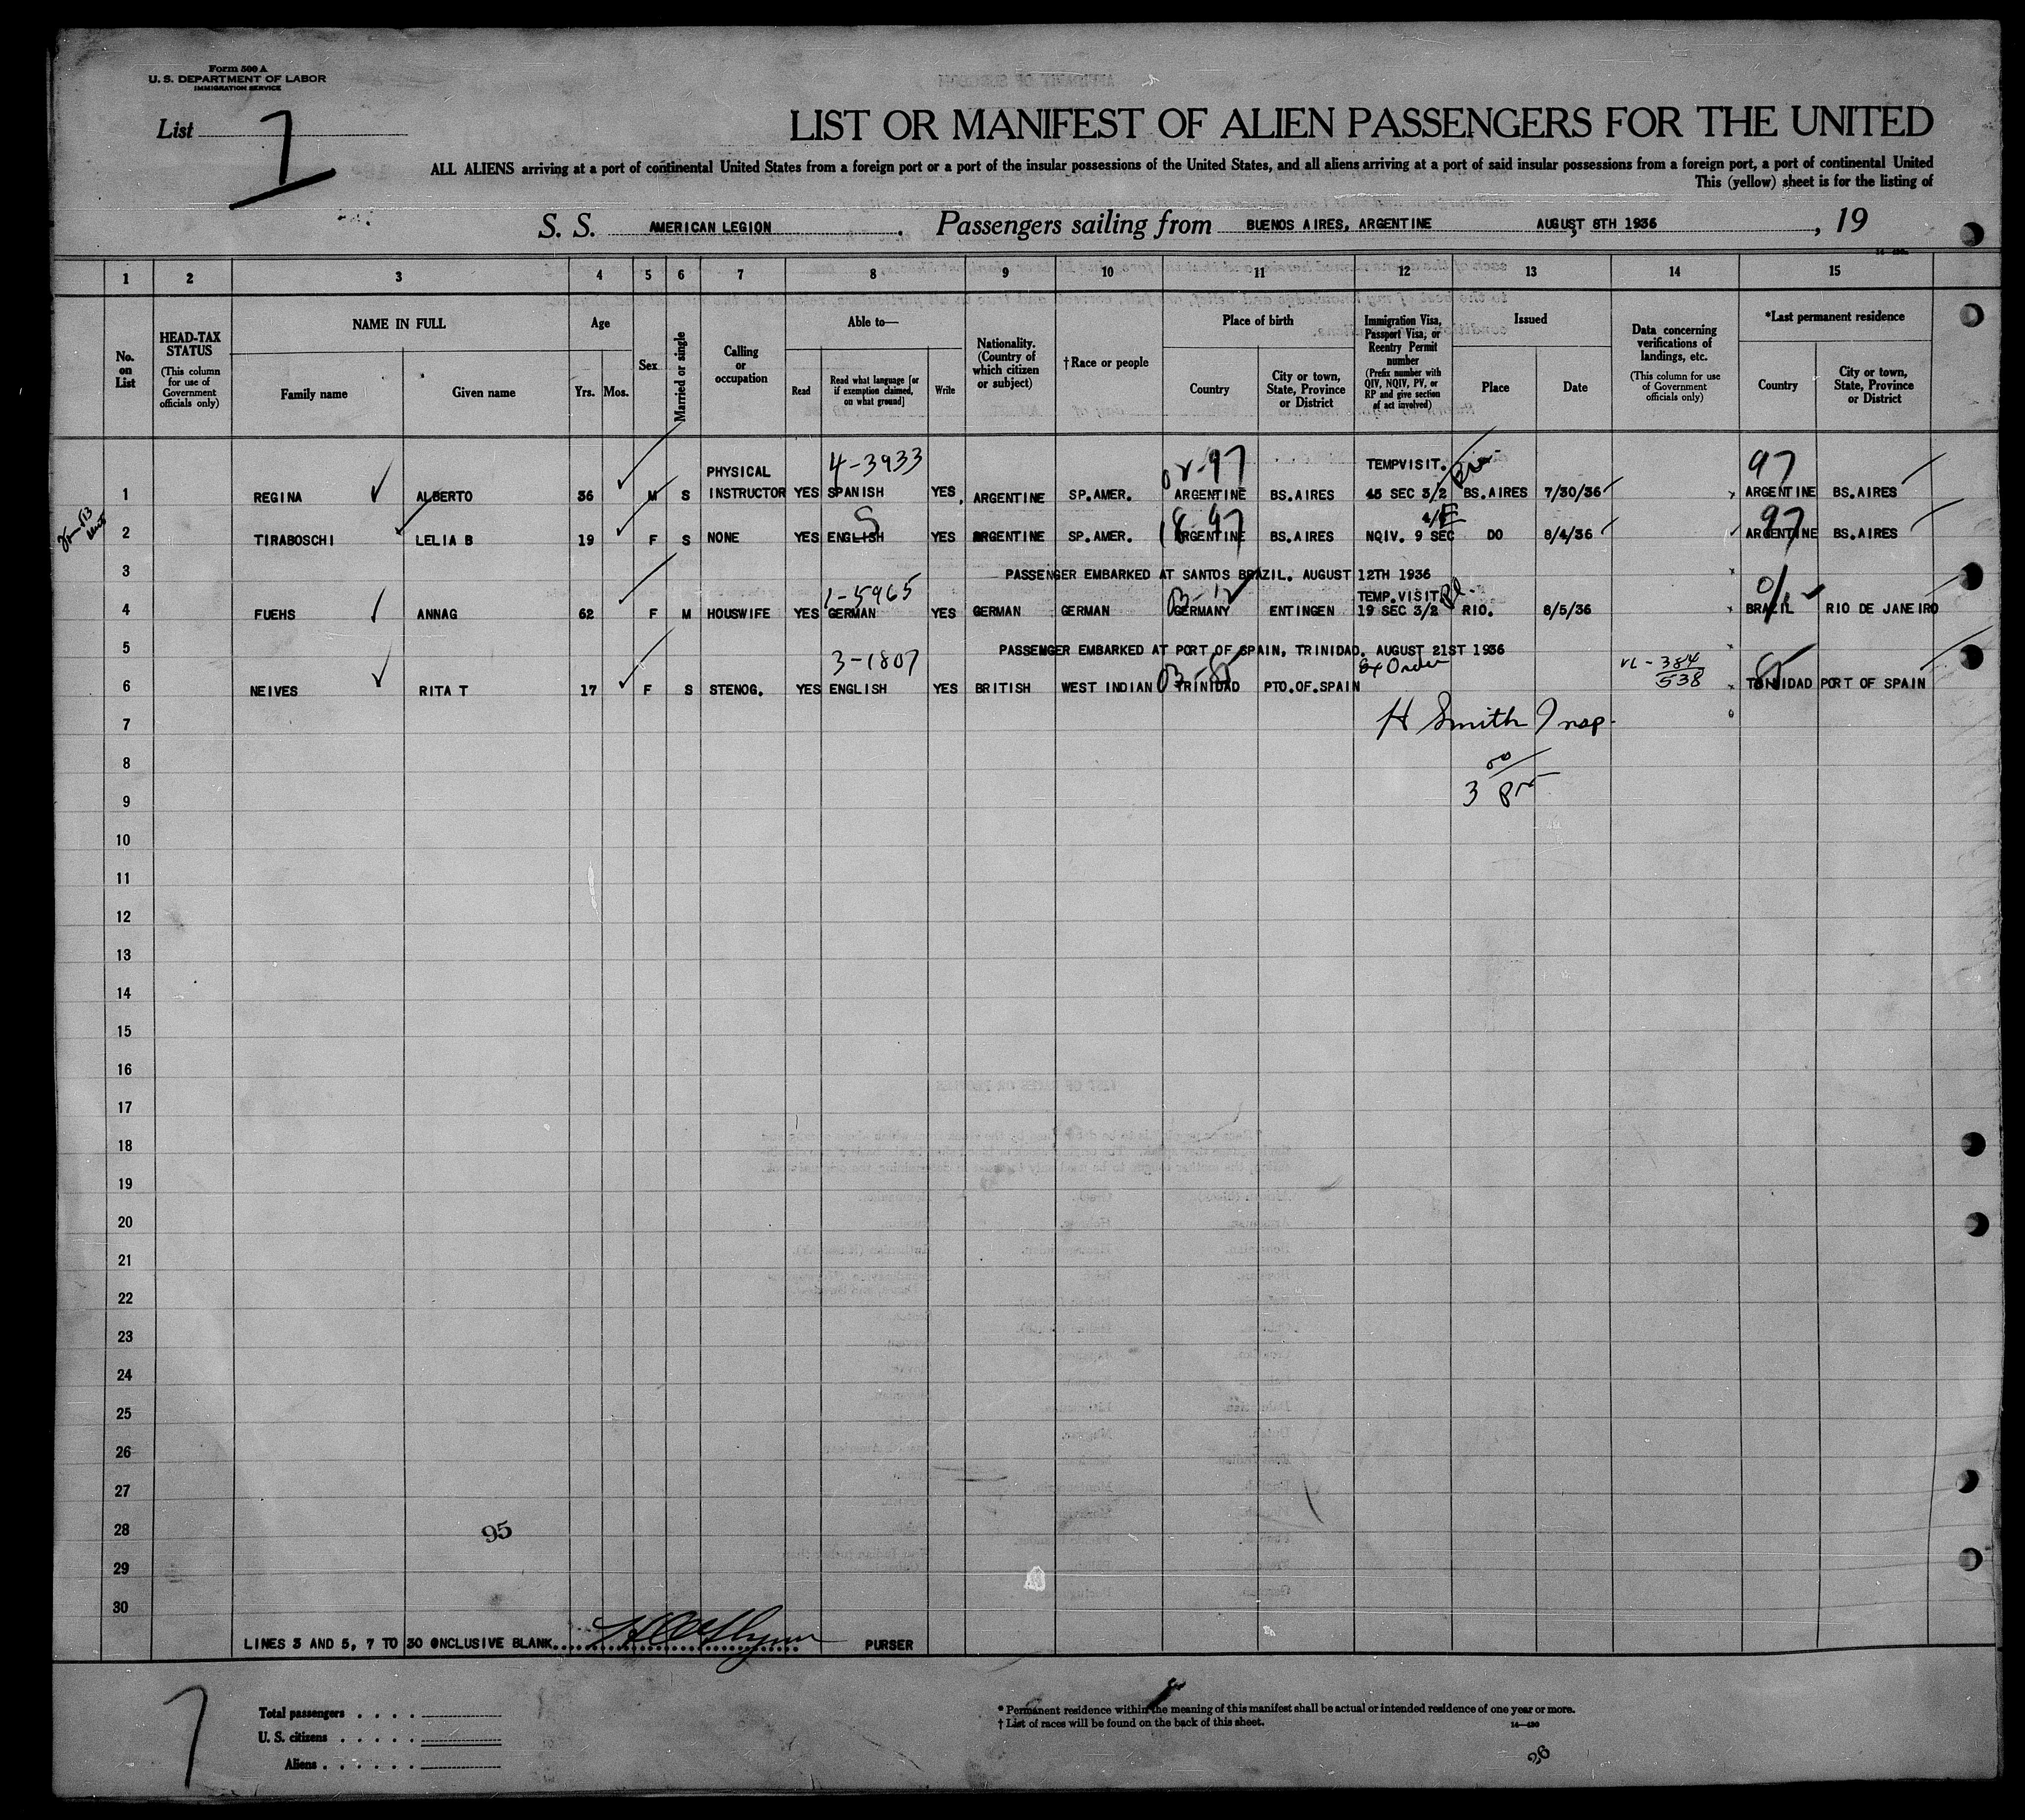 Form 500 A
U. S. DEPARTMENT OF LABOR
IMMIGRATION SERVICE
List 7
LIST OR MANIFEST OF ALIEN PASSENGERS FOR THE UNITED
ALL ALIENS arriving at a port of continental United States from a foreign port or a port of the insular possessions of the United States, and all aliens arriving at a port of said insular possessions from a foreign port, a port of continental United
This (yellow) sheet is for the listing of
S. S. AMERICAN LEGION. Passengers sailing from BUENOS AIRES, ARGENTINE AUGUST 8TH 1936, 19
1 2 3 4 5 6 7 8 9 10 11 12 13 14 15
No. on List
HEAD-TAX STATUS (This column for use of Government officials only)
NAME IN FULL
Family name Given name
Age
Yrs. Mos.
Sex
Married or single
Calling or occupation
Able to—
Read
Read what language [or if exemption claimed, on what ground]
Write
Nationality. (Country of which citizen or subject)
†Race or people
Place of birth
Country
City or town, State, Province or District
Immigration Visa, Passport Visa, or Reentry Permit number (Prefix number with QIV, NQIV, PV, or RP and give section of act involved)
Issued
Place Date
Data concerning verifications of landings, etc. (This column for use of Government officials only)
*Last permanent residence
Country
City or town, State, Province or District
4-3933 97 97
PHYSICAL TEMPVISIT.
1 REGINA ALBERTO 36 M S INSTRUCTOR YES SPANISH YES, ARGENTINE SP.AMER. ARGENTINE BS.AIRES 45 SEC 3/2 BS.AIRES 7/30/36 ARGENTINE BS.AIRES
S 97 97
2 TIRABOSCHI LELIA B 19 F S NONE YES ENGLISH YES ARGENTINE SP.AMER. ARGENTINE BS.AIRES NQIV. 9 SEC DO 8/4/36 ARGENTINE BS.AIRES
3 PASSENGER EMBARKED AT SANTOS BRAZIL. AUGUST 12TH 1936
1-5965 TEMP.VISIT
4 FUEHS ANNAG 62 F M HOUSWIFE YES GERMAN YES GERMAN GERMAN GERMANY ENTINGEN 19 SEC 3/2 RIO. 8/5/36 BRAZIL RIO DE JANEIRO
5 PASSENGER EMBARKED AT PORT OF SPAIN, TRINIDAD. AUGUST 21ST 1936
3-1807 Ex Order VL-384
538
6 NEIVES RITA T 17 F S STENOG. YES ENGLISH YES BRITISH WEST INDIAN TRINIDAD PTO.OF.SPAIN TRINIDAD PORT OF SPAIN
7 H Smith Insp.
8
9
10
11
12
13
14
15
16
17
18
19
20
21
22
23
24
25
26
27
28
95
29
30
LINES 3 AND 5, 7 TO 30 ONCLUSIVE BLANK. PURSER
7
Total passengers
U. S. citizens
Aliens
* Permanent residence within the meaning of this manifest shall be actual or intended residence of one year or more.
† List of races will be found on the back of this sheet.
14—430
26